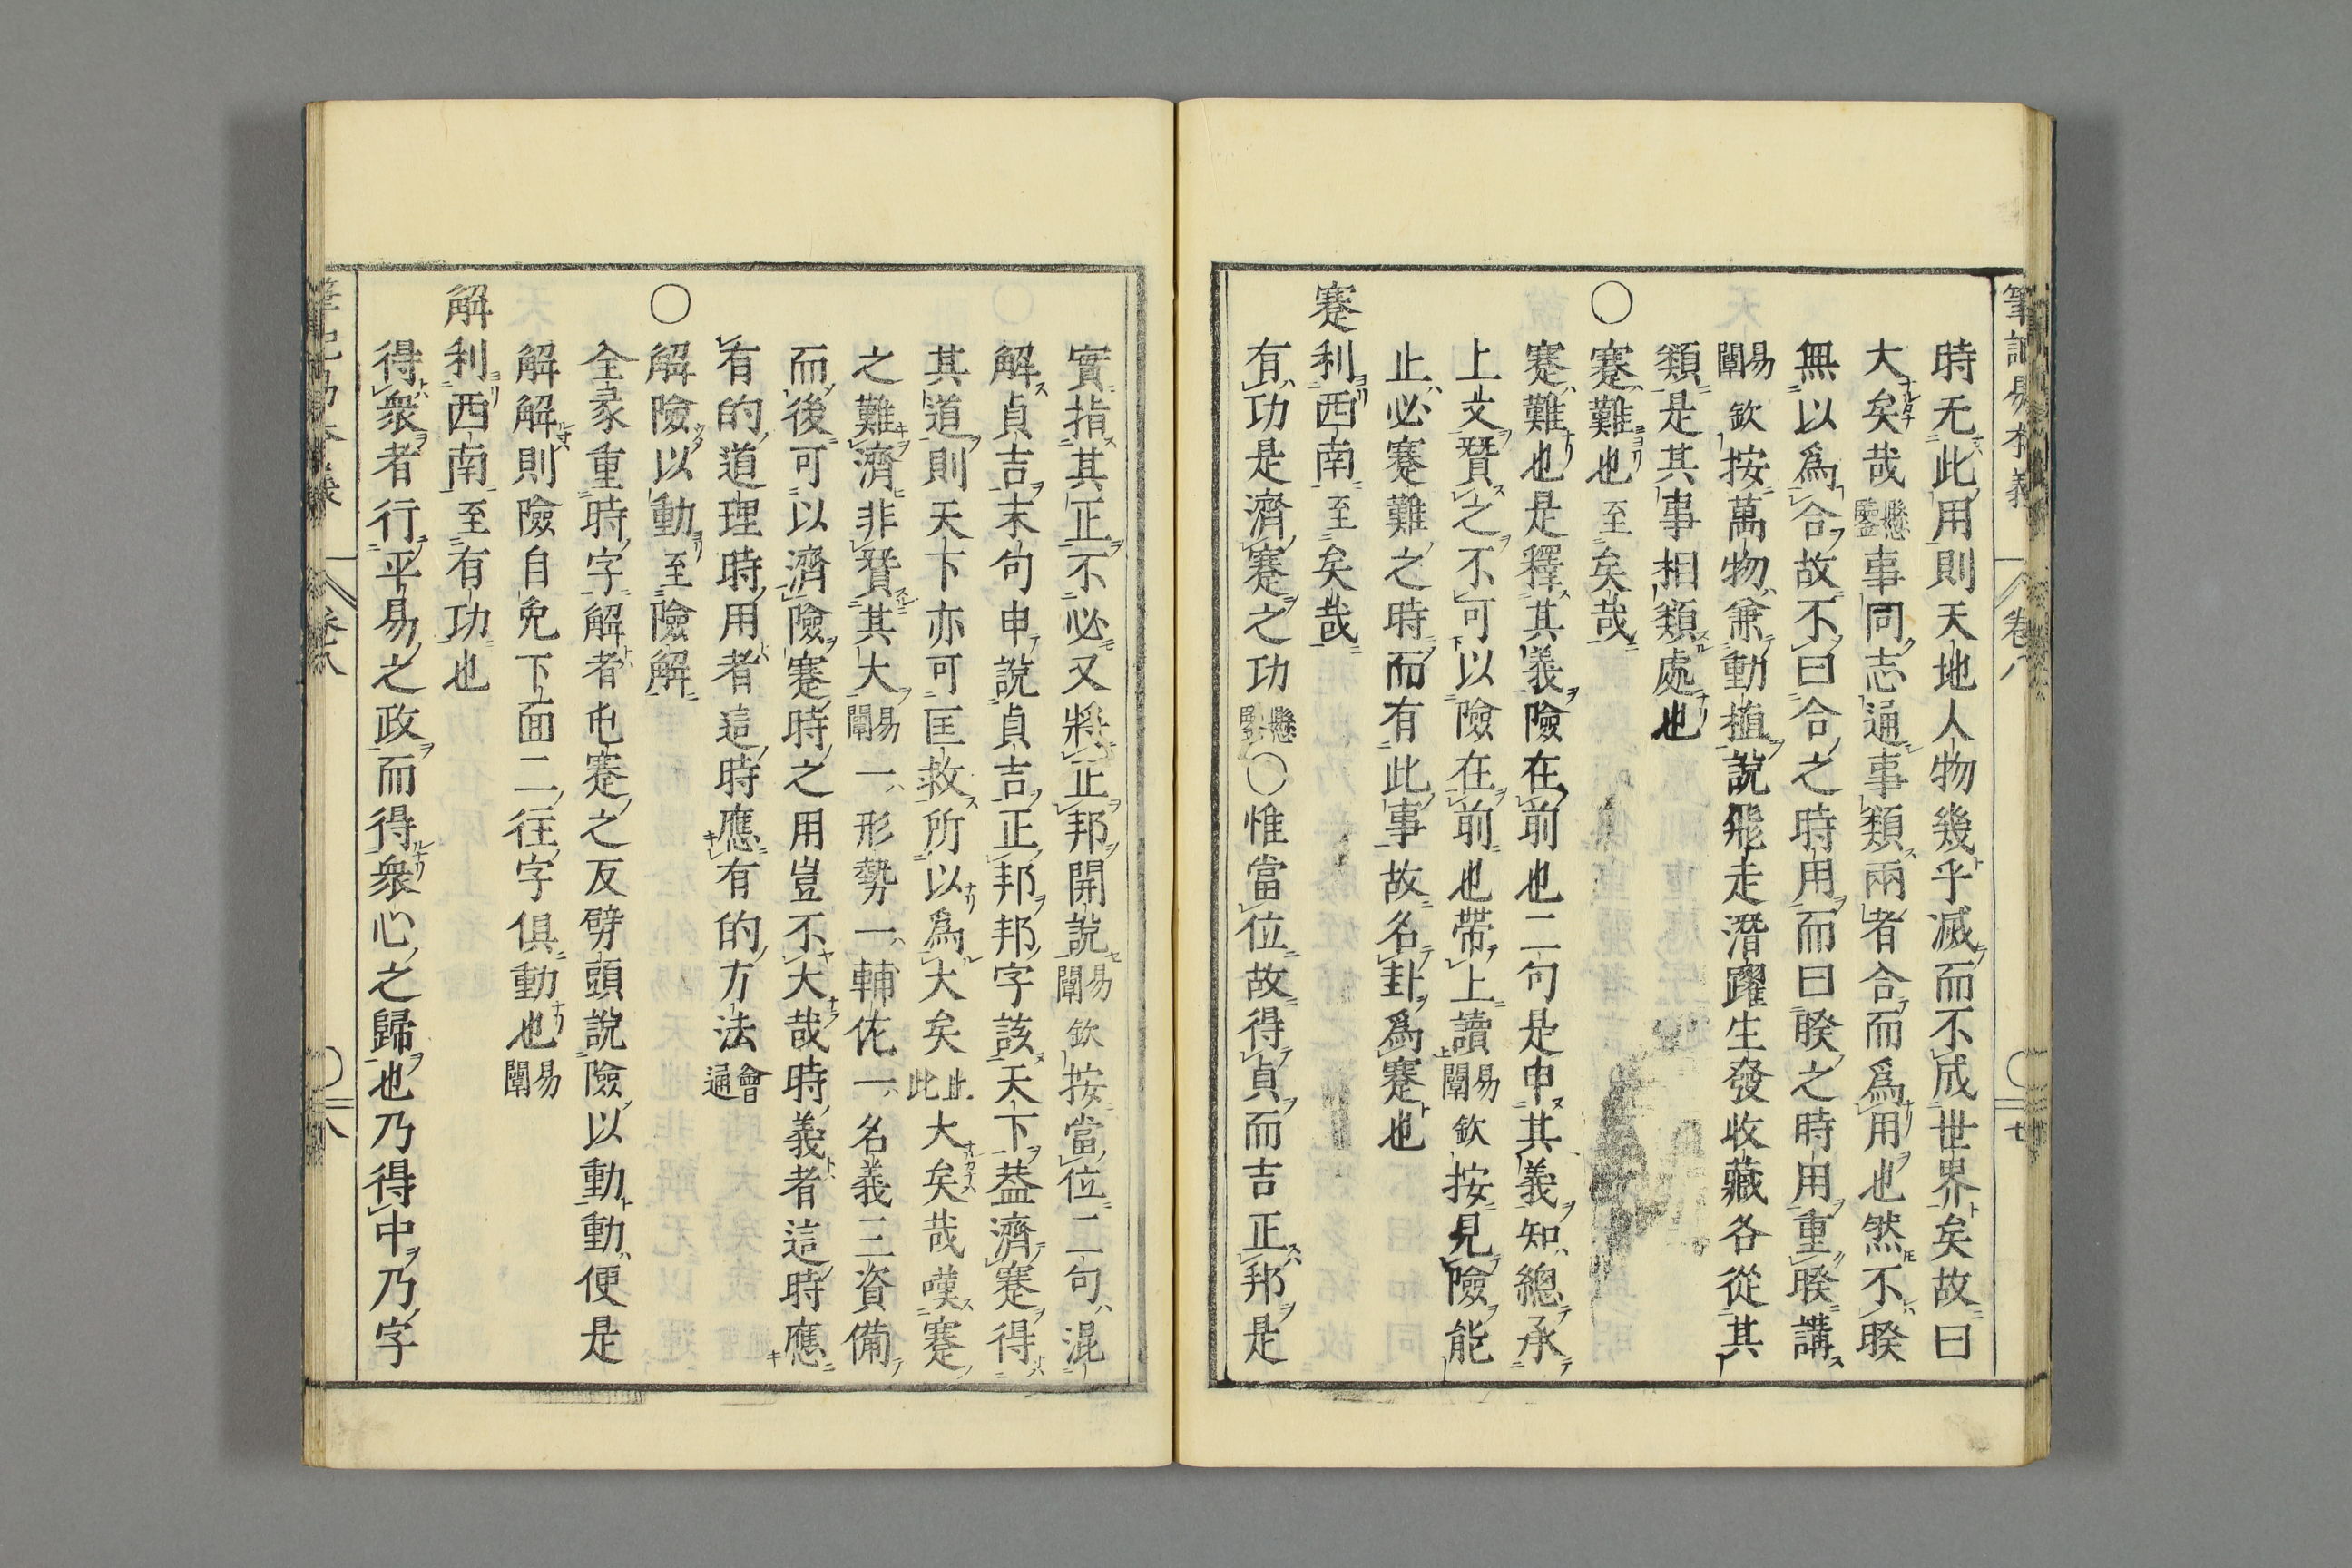 時无此用則天地人物幾乎滅而不成世界矣故曰
大矣哉懸鑒事同志通事類兩者合而爲用也然不睽
無以爲合故不曰合之時用而曰睽之時用重睽講
易闡欽按萬物兼動植說飛走潛躍生發收藏各從其
類是其事相類處也
○蹇難也至矣哉
蹇難也是釋其義險在前也二句是中其義知總承
上文賛之不可以險在前也帶上讀易闡欽按見險能
止必蹇難之時而有此事故名卦爲蹇也
蹇利西南至矣哉
有功是濟蹇之功懸鑒○惟當位故得貞而吉正邦是
卷八
七
實指其正不必又將正邦開說易闡欽按當位二句混
解貞吉末句申說貞吉正邦邦字該天下葢濟蹇得
其道則天下亦可匡救所以爲大矣止此大矣哉嘆蹇
之難濟非賛其大易闡一形勢一輔佐一名義三資備
而後可以濟險蹇時之用豈不大哉時義者這時應
有的道理時用者這時應有的方法會通
○解險以動至險解
全彖重時字解者屯蹇之反劈頭說險以動動便是
解解則險自免下面二往字俱動也易闡
解利西南至有功也
得衆者行平易之政而得衆心之歸也乃得中乃字
八